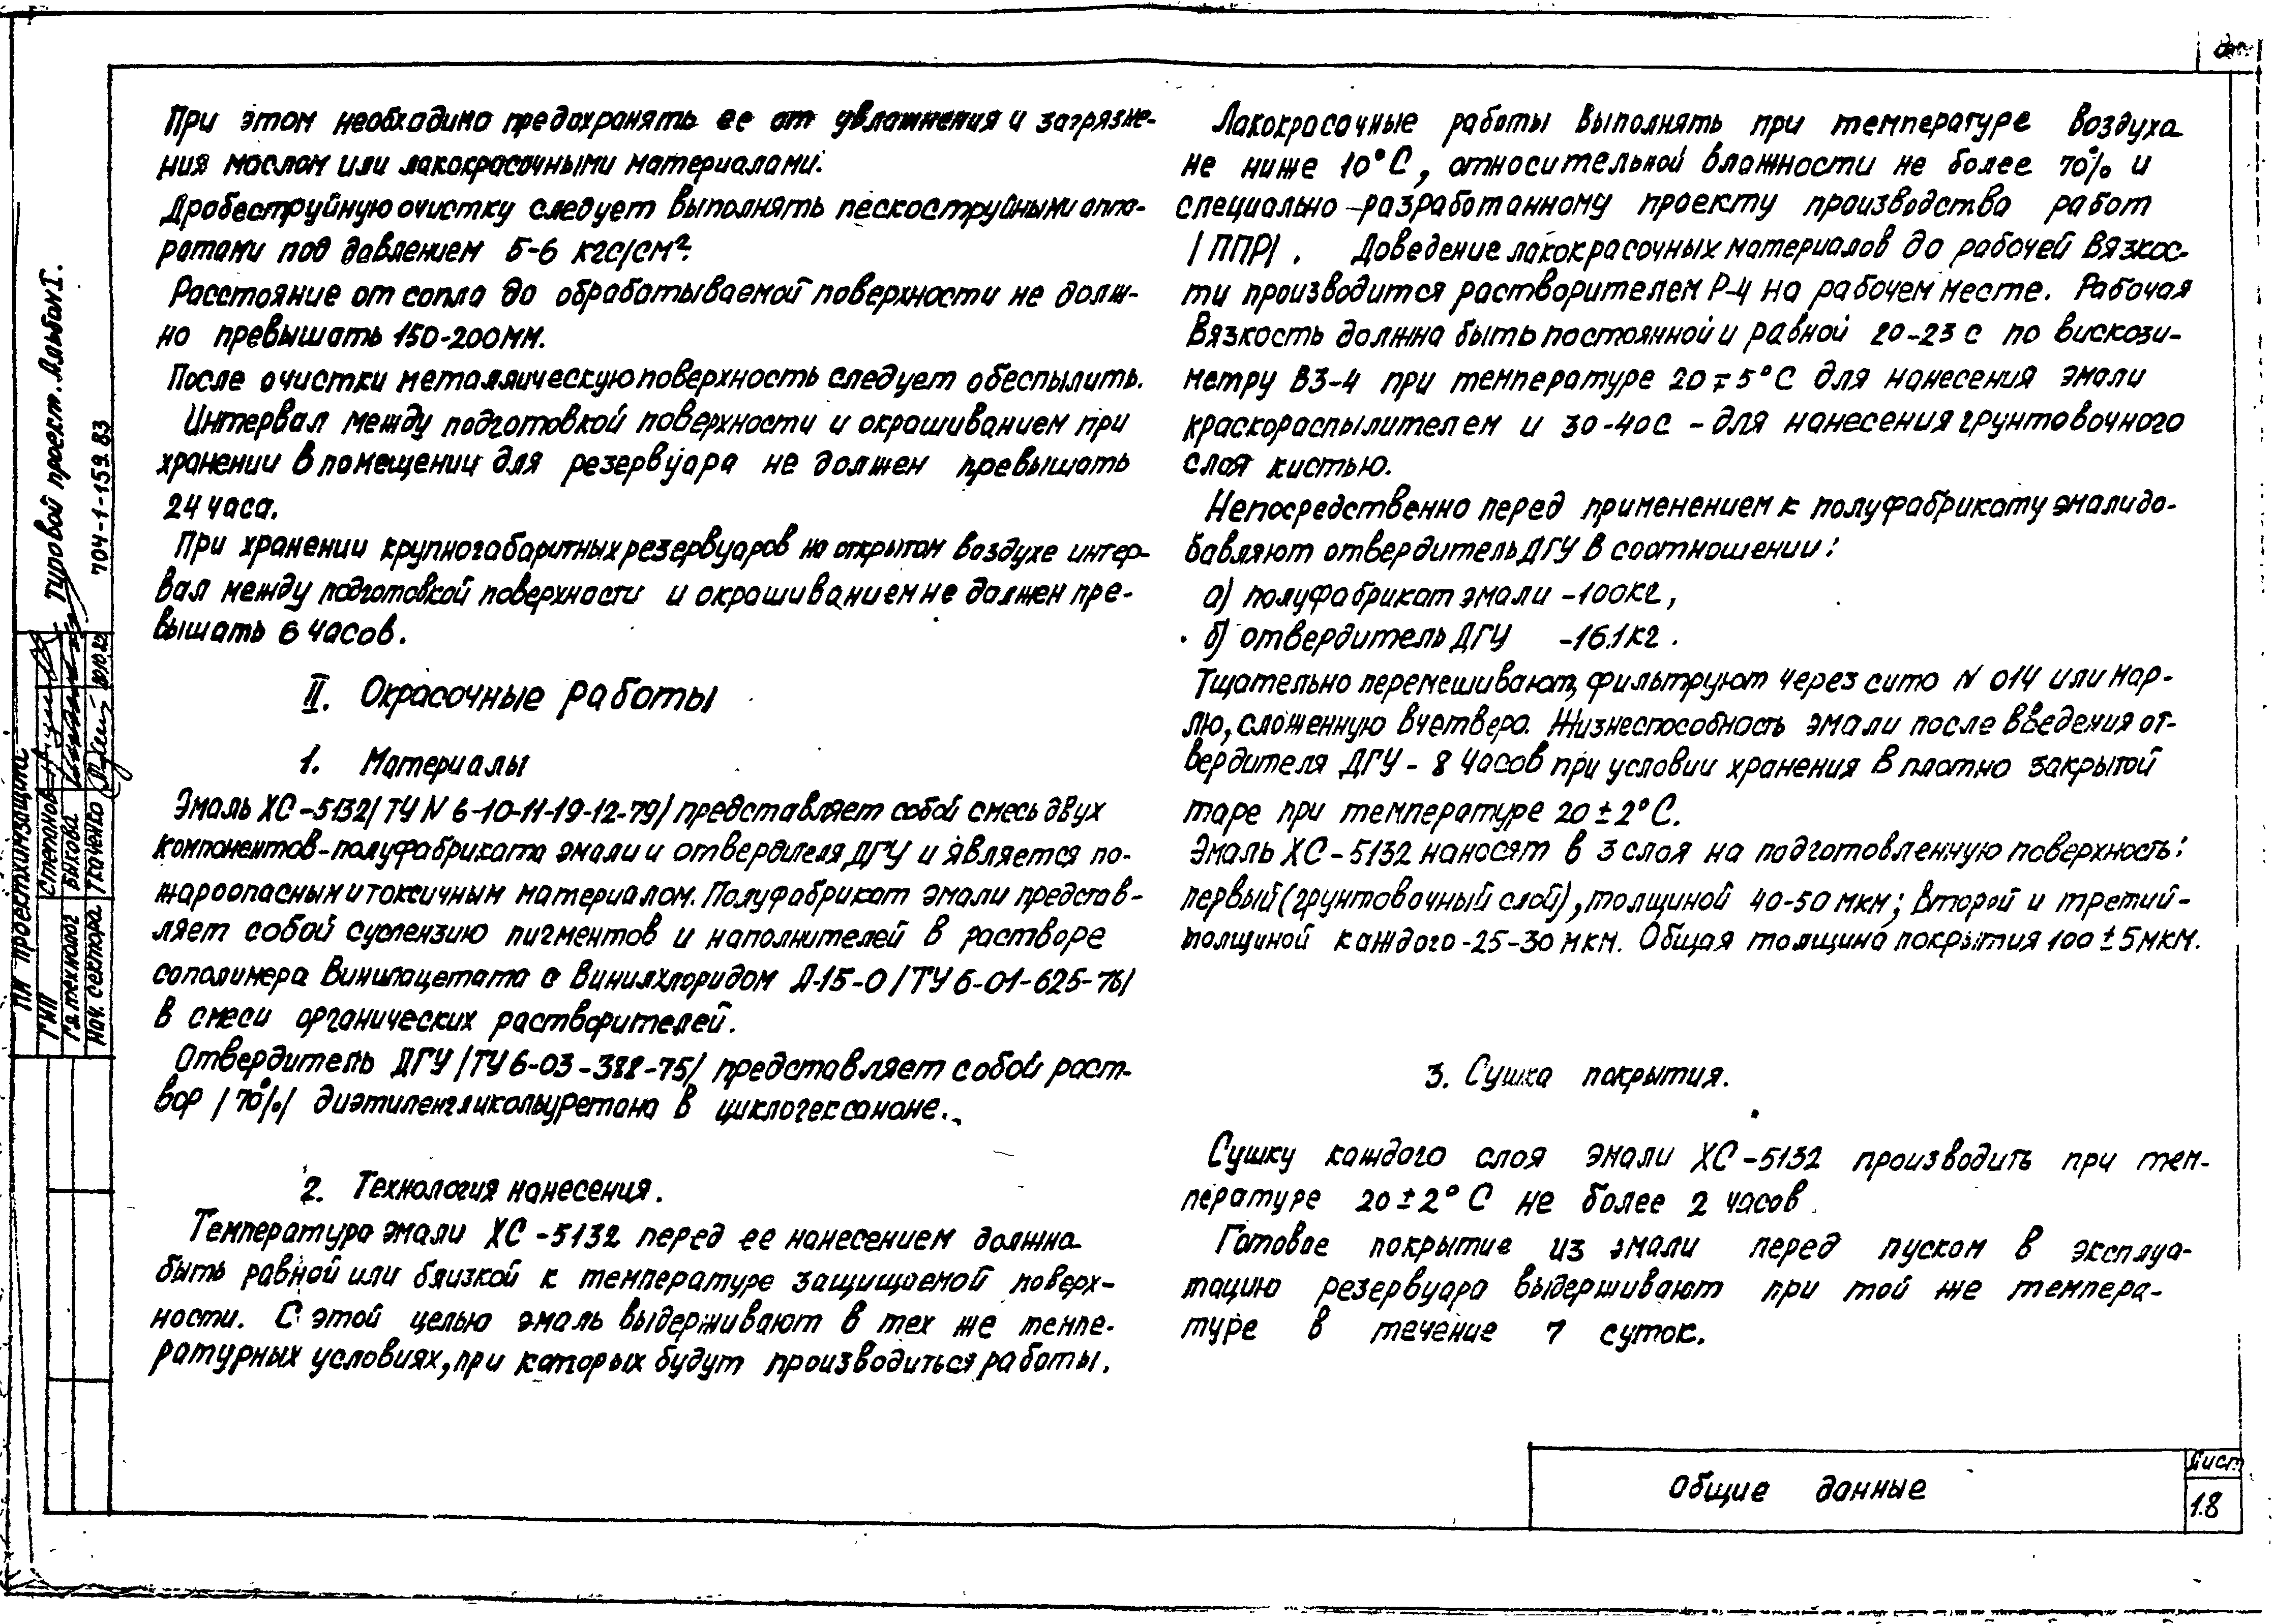 При этом необходимо предохранять ее от увлажнения и загрязне-
ния маслом или лакокрасочными материалами.
Дробеструйную очистку следует выполнять пескоструйными аппа-
ратами под давлением 5-6 кгс/см².
Расстояние от сопла до обрабатываемой поверхности не долж-
но превышать 150-200мм.
После очистки металлическую поверхность следует обеспылить.
Интервал между подготовкой поверхности и окрашиванием при
хранении в помещении для резервуара не должен превышать
24 часа.
При хранении крупногабаритных резервуаров на открытом воздухе интер-
вал между подготовкой поверхности и окрашиванием не должен пре-
вышать 6 часов.
II. Окрасочные работы
1. Материалы
Эмаль ХС-5132/ТУ N 6-10-11-19-12-79/ представляет собой смесь двух
компонентов-полуфабриката эмали и отвердителя ДГУ и является по-
жароопасным и токсичным материалом. Полуфабрикат эмали представ-
ляет собой суспензию пигментов и наполнителей в растворе
сополимера винилацетата с винилхлоридом А-15-О /ТУ 6-01-625-76/
в смеси органических растворителей.
Отвердитель ДГУ /ТУ 6-03-388-75/ представляет собой раст-
вор /70%/ диэтиленгликольуретана в циклогексаноне.
2. Технология нанесения.
Температура эмали ХС-5132 перед ее нанесением должна
быть равной или близкой к температуре защищаемой поверх-
ности. С этой целью эмаль выдерживают в тех же темпе-
ратурных условиях, при которых будут производиться работы.
Лакокрасочные работы выполнять при температуре воздуха
не ниже 10°С, относительной влажности не более 70% и
специально-разработанному проекту производства работ
/ППР/. Доведение лакокрасочных материалов до рабочей вязкос-
ти производится растворителем Р-4 на рабочем месте. Рабочая
вязкость должна быть постоянной и равной 20-23 с по вискози-
метру ВЗ-4 при температуре 20∓5°С для нанесения эмали
краскораспылителем и 30-40с - для нанесения грунтовочного
слоя кистью.
Непосредственно перед применением к полуфабрикату эмали до-
бавляют отвердитель ДГУ в соотношении:
а) полуфабрикат эмали -100кг,
б) отвердитель ДГУ -16.1кг.
Тщательно перемешивают, фильтруют через сито N 014 или мар-
лю, сложенную вчетверо. Жизнеспособность эмали после введения от-
вердителя ДГУ - 8 часов при условии хранения в плотно закрытой
таре при температуре 20±2°С.
Эмаль ХС-5132 наносят в 3 слоя на подготовленную поверхность:
первый (грунтовочный слой), толщиной 40-50 мкм; второй и третий-
толщиной каждого-25-30 мкм. Общая толщина покрытия 100±5мкм.
3. Сушка покрытия.
Сушку каждого слоя эмали ХС-5132 производить при тем-
пературе 20±2°С не более 2 часов.
Готовое покрытие из эмали перед пуском в эксплуа-
тацию резервуара выдерживают при той же темпера-
туре в течение 7 суток.
Общие данные
Лист
1.8
Типовой проект. Альбом I.
704-1-159.83
ПИ проектхимзащита
ГИП Степанов
Гл. технолог Быкова
Нач. сектора Ткаченко